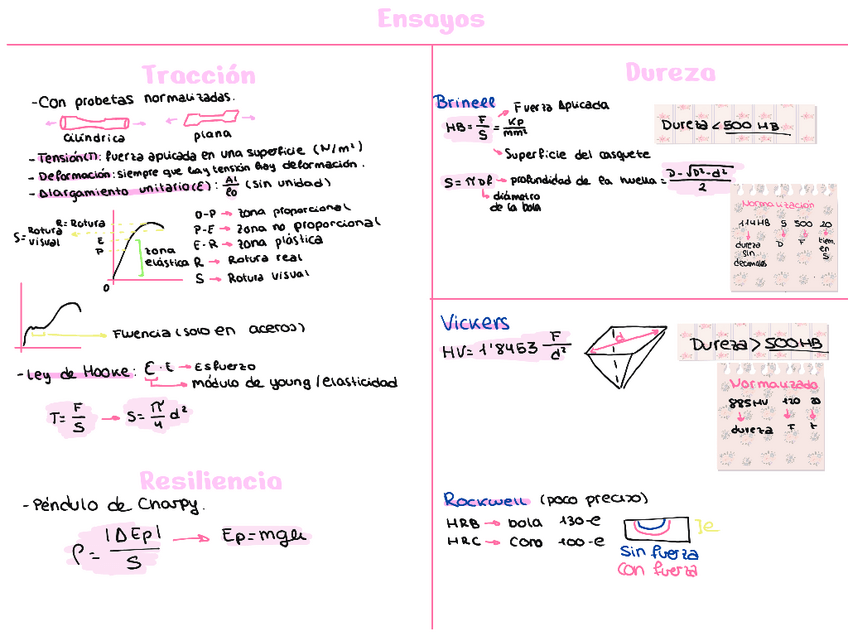 Ensayos
Tracción
-Con probetas normalizadas.
cilíndrica
plana
- Tensión(T): fuerza aplicada en una superficie (N/m²)
- Deformación: siempre que hay tensión hay deformación.
- Alargamiento unitario(ε): Δl/l₀ (sin unidad)
R = Rotura
S = Rotura visual
E
P
0
zona elástica
O-P → zona proporcional
P-E → zona no proporcional
E-R → zona plástica
R → Rotura real
S → Rotura visual
Fluencia (solo en aceros)
- Ley de Hooke: E · ε → esfuerzo
módulo de young/elasticidad
T = F/S → S = π/4 d²
Resiliencia
- Péndulo de Charpy.
ρ = |ΔEp|/S → Ep=mgh
Dureza
Brinell
HB = F/S = Kp/mm²
Fuerza Aplicada
Superficie del casquete
Dureza < 500 HB
S = πDf → profundidad de la huella = D-√D²-d²/2
diámetro de la bola
Normalización
114HB 5 500 20
dureza sin decimales
D
F
tiem. en S
Vickers
HV = 1'8453 F/d²
d
Dureza > 500HB
Normalizado
885HV 120 20
dureza F t
Rockwell (poco preciso)
HRB → bola 130-e
HRC → cono 100-e
e
Sin fuerza
con fuerza